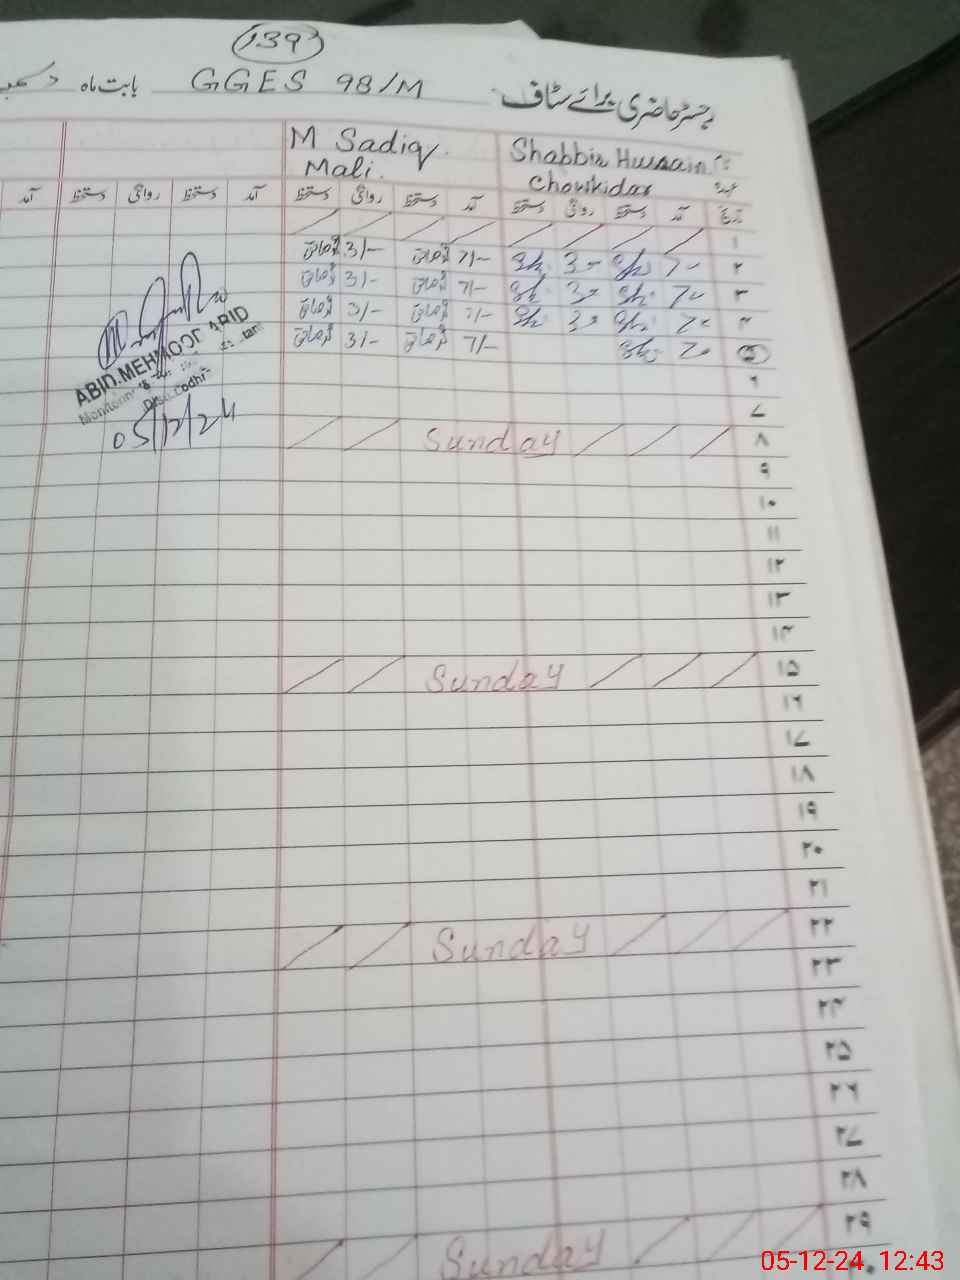 139
رجسٹر حاضری برائے سٹاف GGES 98/M بابت ماہ
Shabbir Hussain M Sadiq
Chowkidar Mali.
تاریخ آمد دستخط روانگی دستخط آمد دستخط روانگی دستخط آمد دستخط روانگی دستخط آمد
۱
۲ 7- Sh. 3- Sh. 7/- صادق 3/- صادق
۳ 7- Sh. 3- Sh. 7/- صادق 3/- صادق
۴ 7- Sh. 3- Sh. 7/- صادق 3/- صادق
۵ 7- Sh. 7/- صادق 3/- صادق
۶
۷
۸ Sunday
۹
۱۰
۱۱
۱۲
۱۳
۱۴
۱۵ Sunday
۱۶
۱۷
۱۸
۱۹
۲۰
۲۱
۲۲ Sunday
۲۳
۲۴
۲۵
۲۶
۲۷
۲۸
۲۹ Sunday
ABID MEHMOOD ABID
Monitoring
Distt. Lodhran
05/12/24
05-12-24 12:43